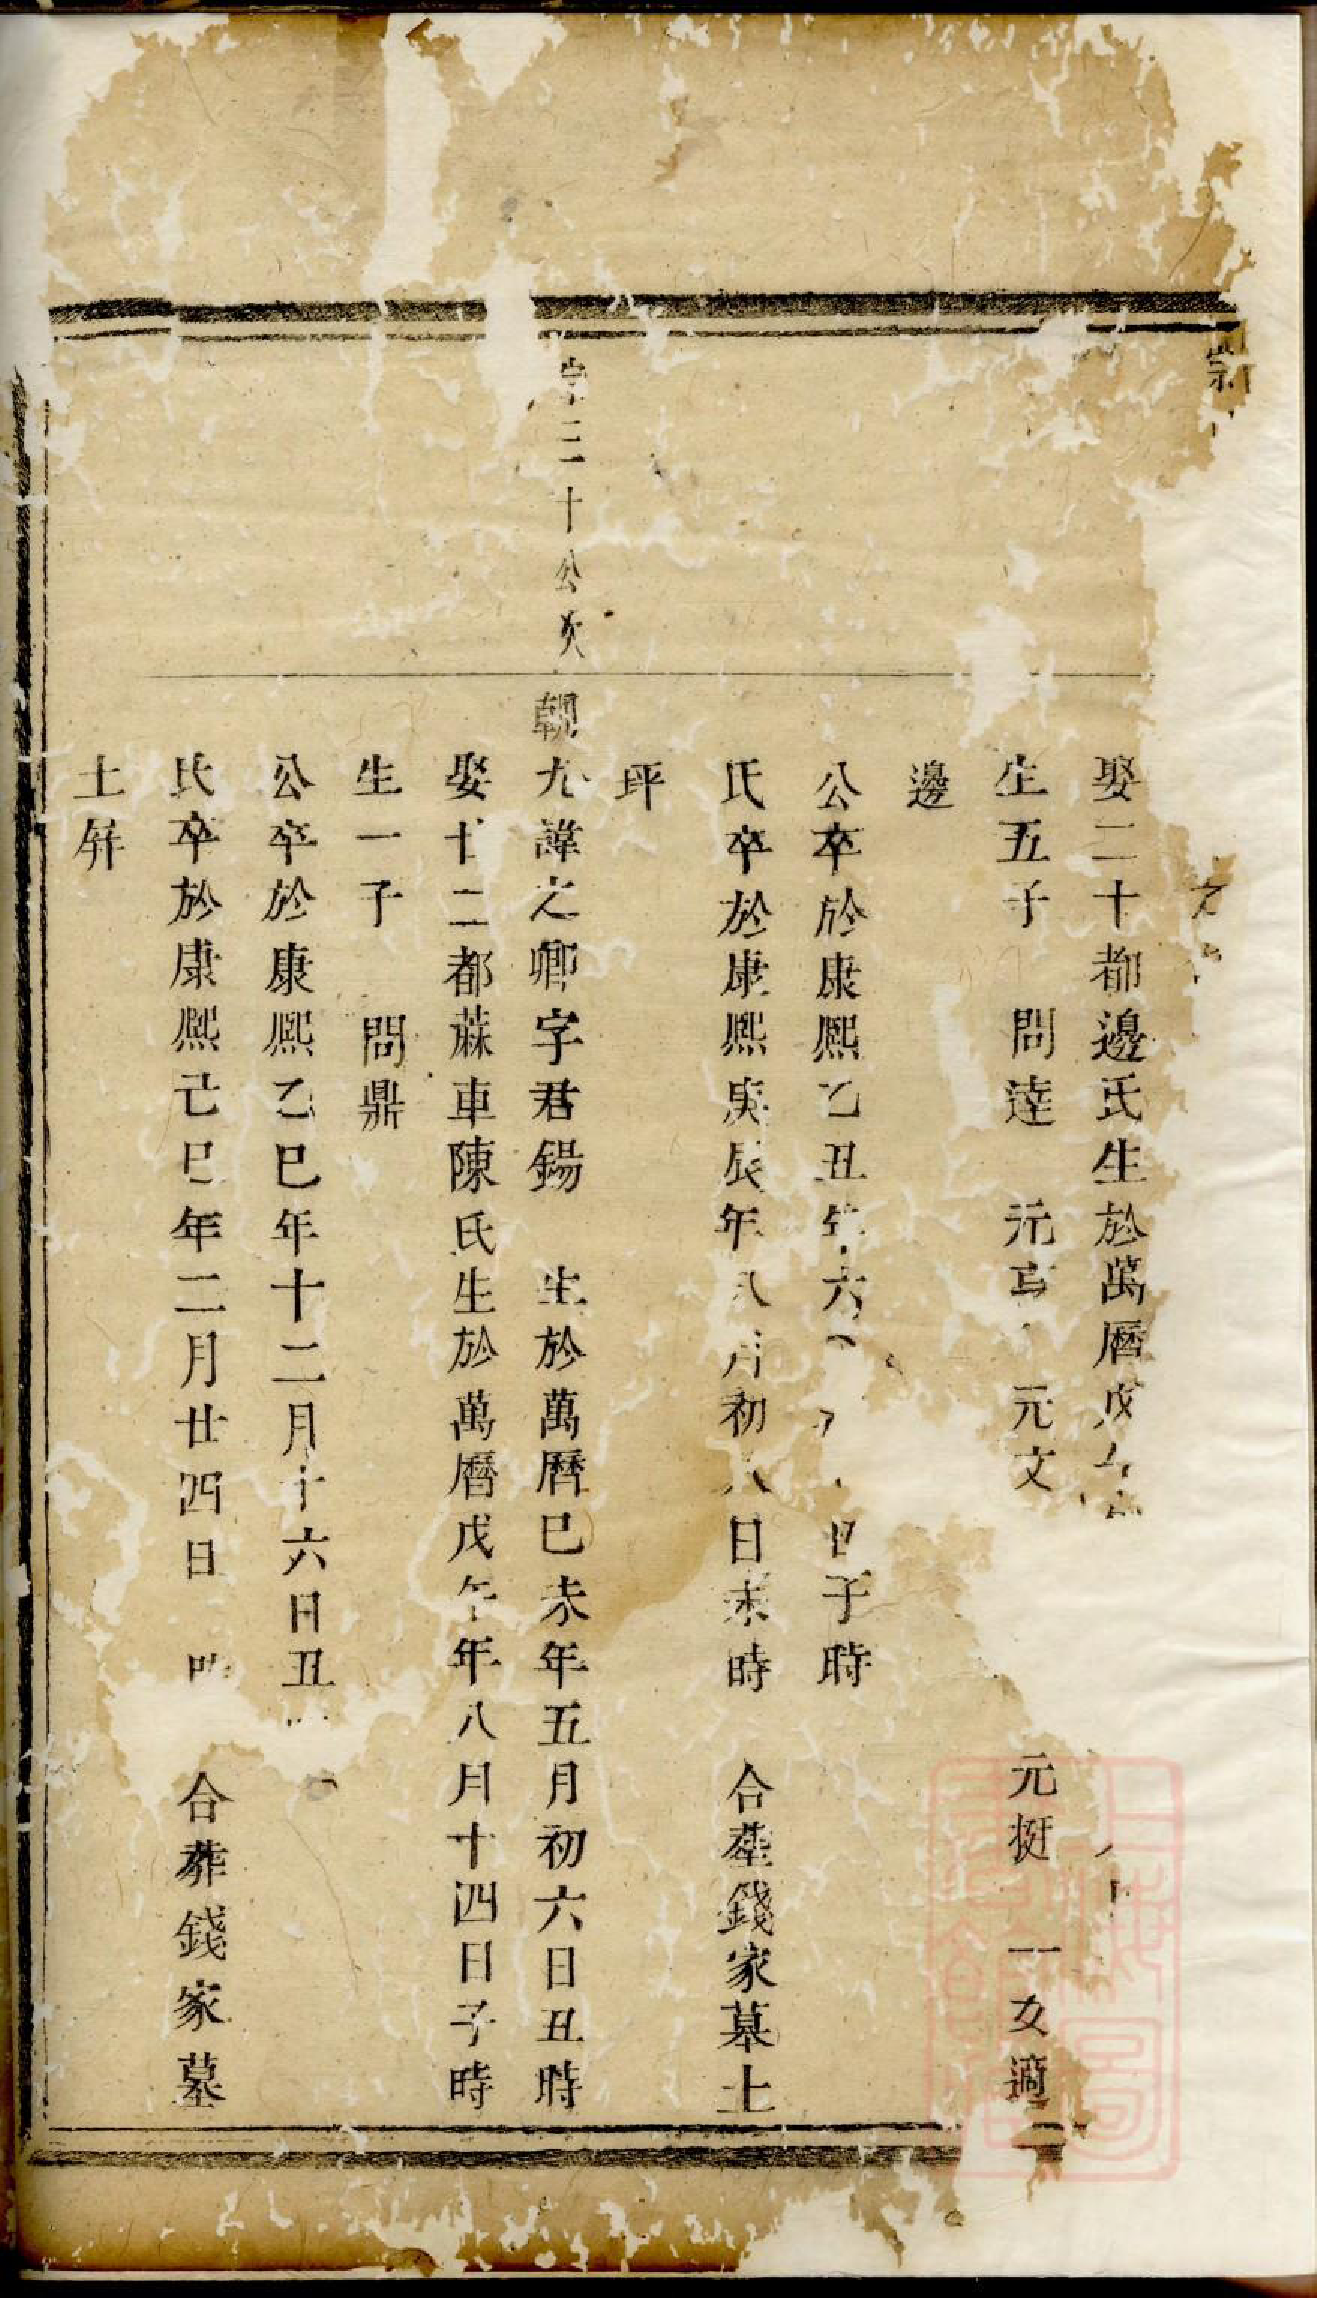 崇
娶二十都邊氏生於萬曆戊
生五子　問達　元　元文　元挺　一女適
邊
公卒於康熙乙丑年六　日子時
氏卒於康熙庚辰年八月初八日未時　合塟錢家墓土
坪
三十公次
九諱之卿字君錫　生於萬曆巳未年五月初六日丑時
娶十二都蔴車陳氏生於萬曆戊午年八月十四日子時
生一子　問鼎
公卒於康熙乙巳年十二月十六日丑
氏卒於康熙己巳年二月廿四日　合葬錢家墓
土